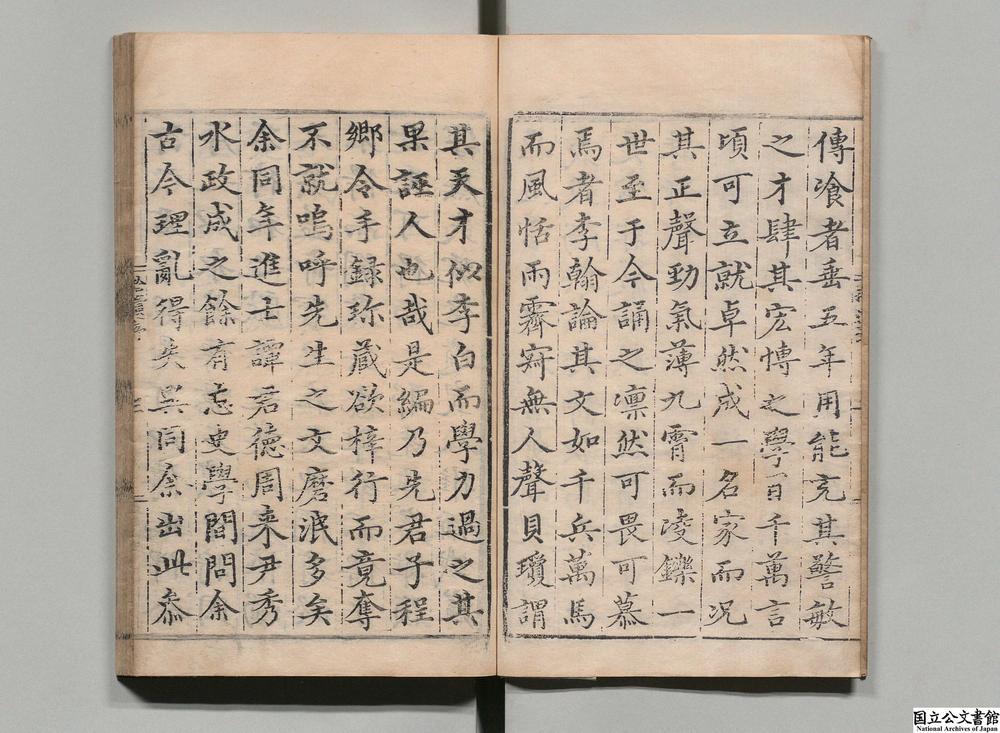 傳飡者垂五年用能充其警敏
之才肆其宏博之學一日千萬言
頃可立就卓然成一名家而況
其正聲勁氣薄九霄而凌鑠一
世至于今誦之凛然可畏可慕
焉者李翰論其文如千兵萬馬
而風恬雨霽寂無人聲貝瓊謂
其天才似李白而學力過之其
果誣人也哉是編乃先君子程
鄉令手録珎藏欲梓行而竟奪
不就嗚呼先生之文磨泯多矣
余同年進士譚君德周来尹秀
水政成之餘有志史學間問余
古今理亂得失異同余出此忝
国立公文書館
National Archives of Japan